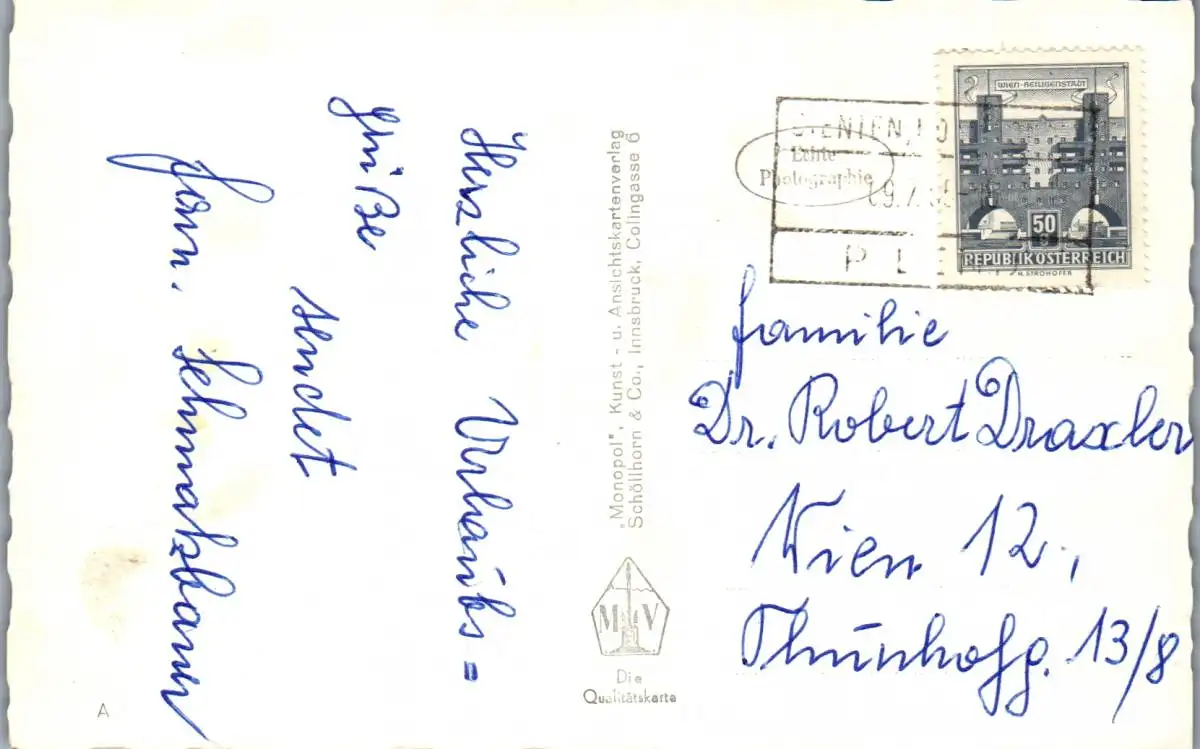 Herzliche Urlaubs=
grüße
sendet
Fam. Schmatzbauer
"Monopol", Kunst - u. Ansichtskartenverlag
Schöllhorn & Co., Innsbruck, Colingasse 6
M V
Die
Qualitätskarte
A
Echte
Photographie
09.7.
WIEN-HEILIGENSTADT
50
REPUBLIK ÖSTERREICH
H. STROHOFER
Familie
Dr. Robert Draxler
Wien 12.,
Thunhofg. 13/8